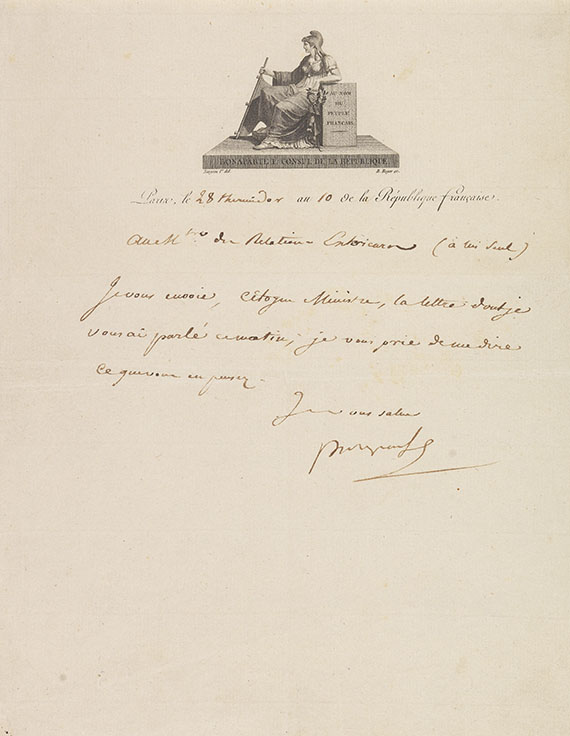 AU NOM
DU
PEUPLE
FRANÇAIS.
BONAPARTE, 1er CONSUL DE LA RÉPUBLIQUE
B. Roger sc.
Paris, le 28 thermidor an 10 de la République française.
Au Mtre des Relations Extérieures (à lui seul)
Je vous envoie, Citoyen Ministre, la lettre dont je
vous ai parlé ce matin; je vous prie de me dire
ce que vous en pensez.
Je vous salue